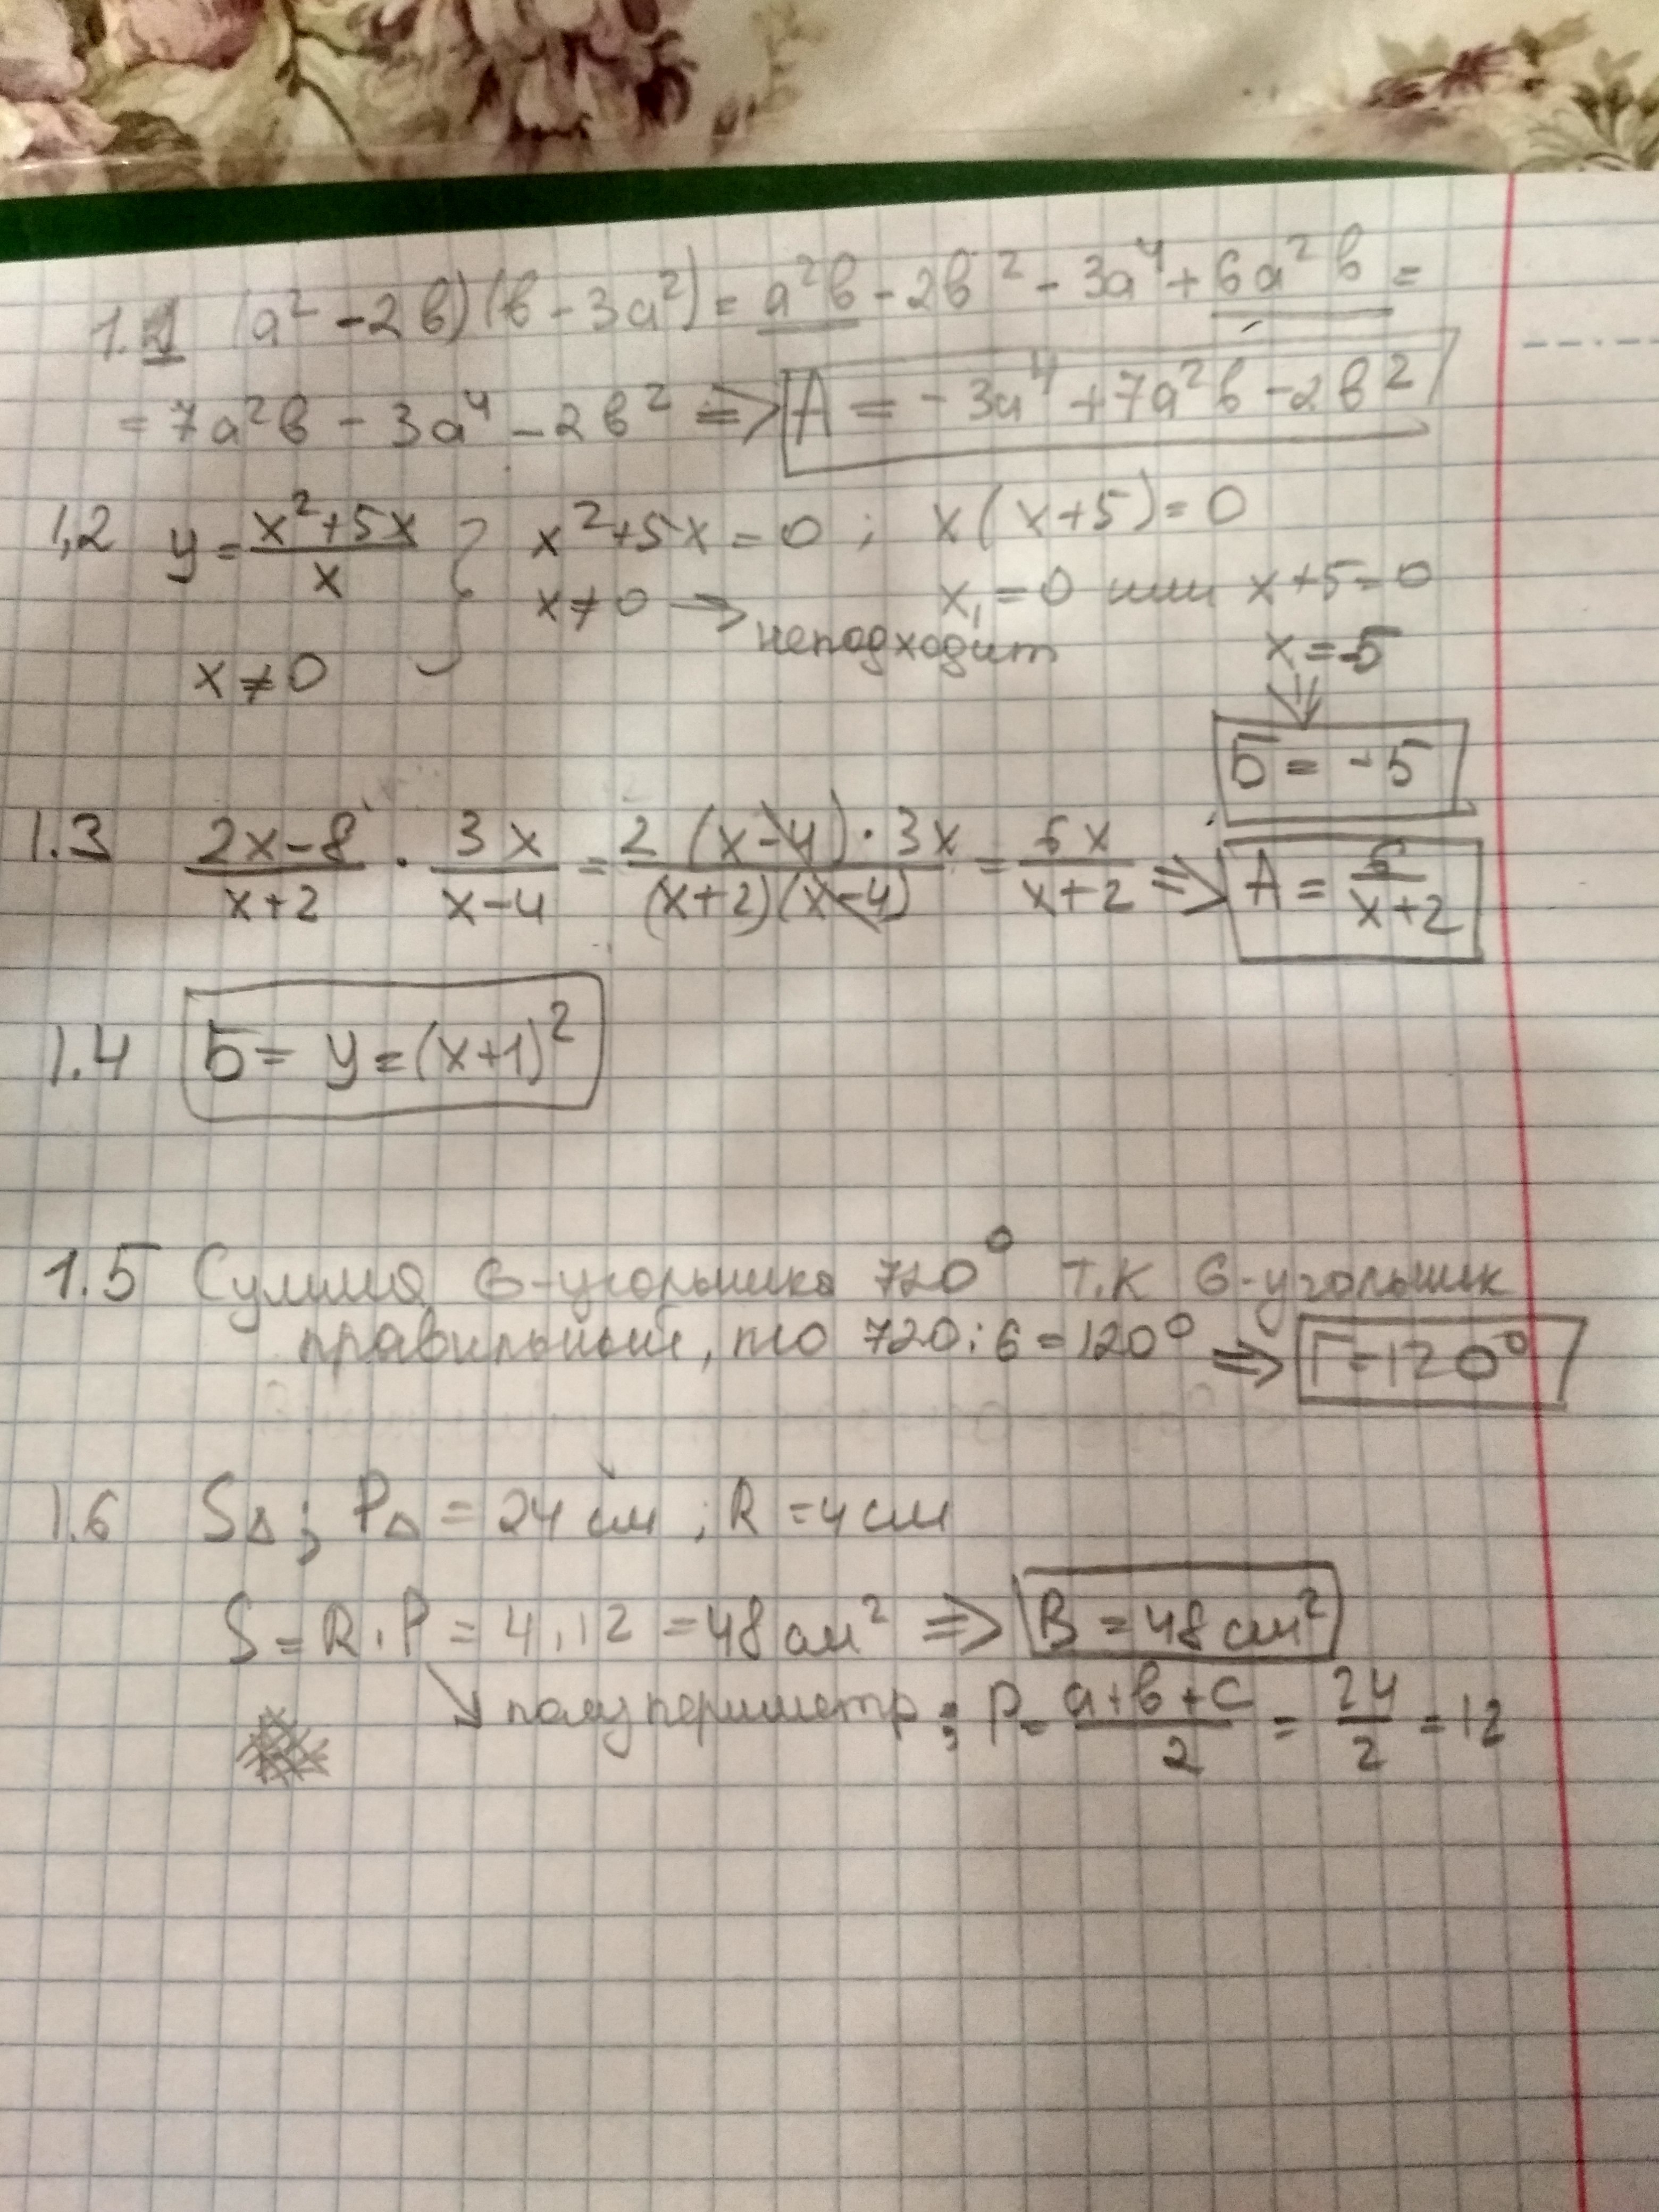 1.1 (a² - 2в)(в - 3a²) = a²в - 2в² - 3a⁴ + 6a²в =
= 7a²в - 3a⁴ - 2в² => A = -3a⁴ + 7a²в - 2в²
1,2 y = (x²+5x)/x } x²+5x = 0 ; x(x+5) = 0
x ≠ 0 → неподходит x₁ = 0 или x+5=0
x ≠ 0 x = -5
Б = -5
1.3 (2x-8)/(x+2) · 3x/(x-4) = (2(x-4)·3x)/((x+2)(x-4)) = 6x/(x+2) => A = 6/(x+2)
1.4 Б = y = (x+1)²
1.5 Сумма 6-угольника 720° Т.К 6-угольник
правильный, то 720:6=120° => Г=120°
1.6 S△ ; P△ = 24 см ; R = 4 см
S = R · P = 4 . 12 = 48 см² => В = 48 см²
↘ полупериметр ; P = (a+в+c)/2 = 24/2 = 12